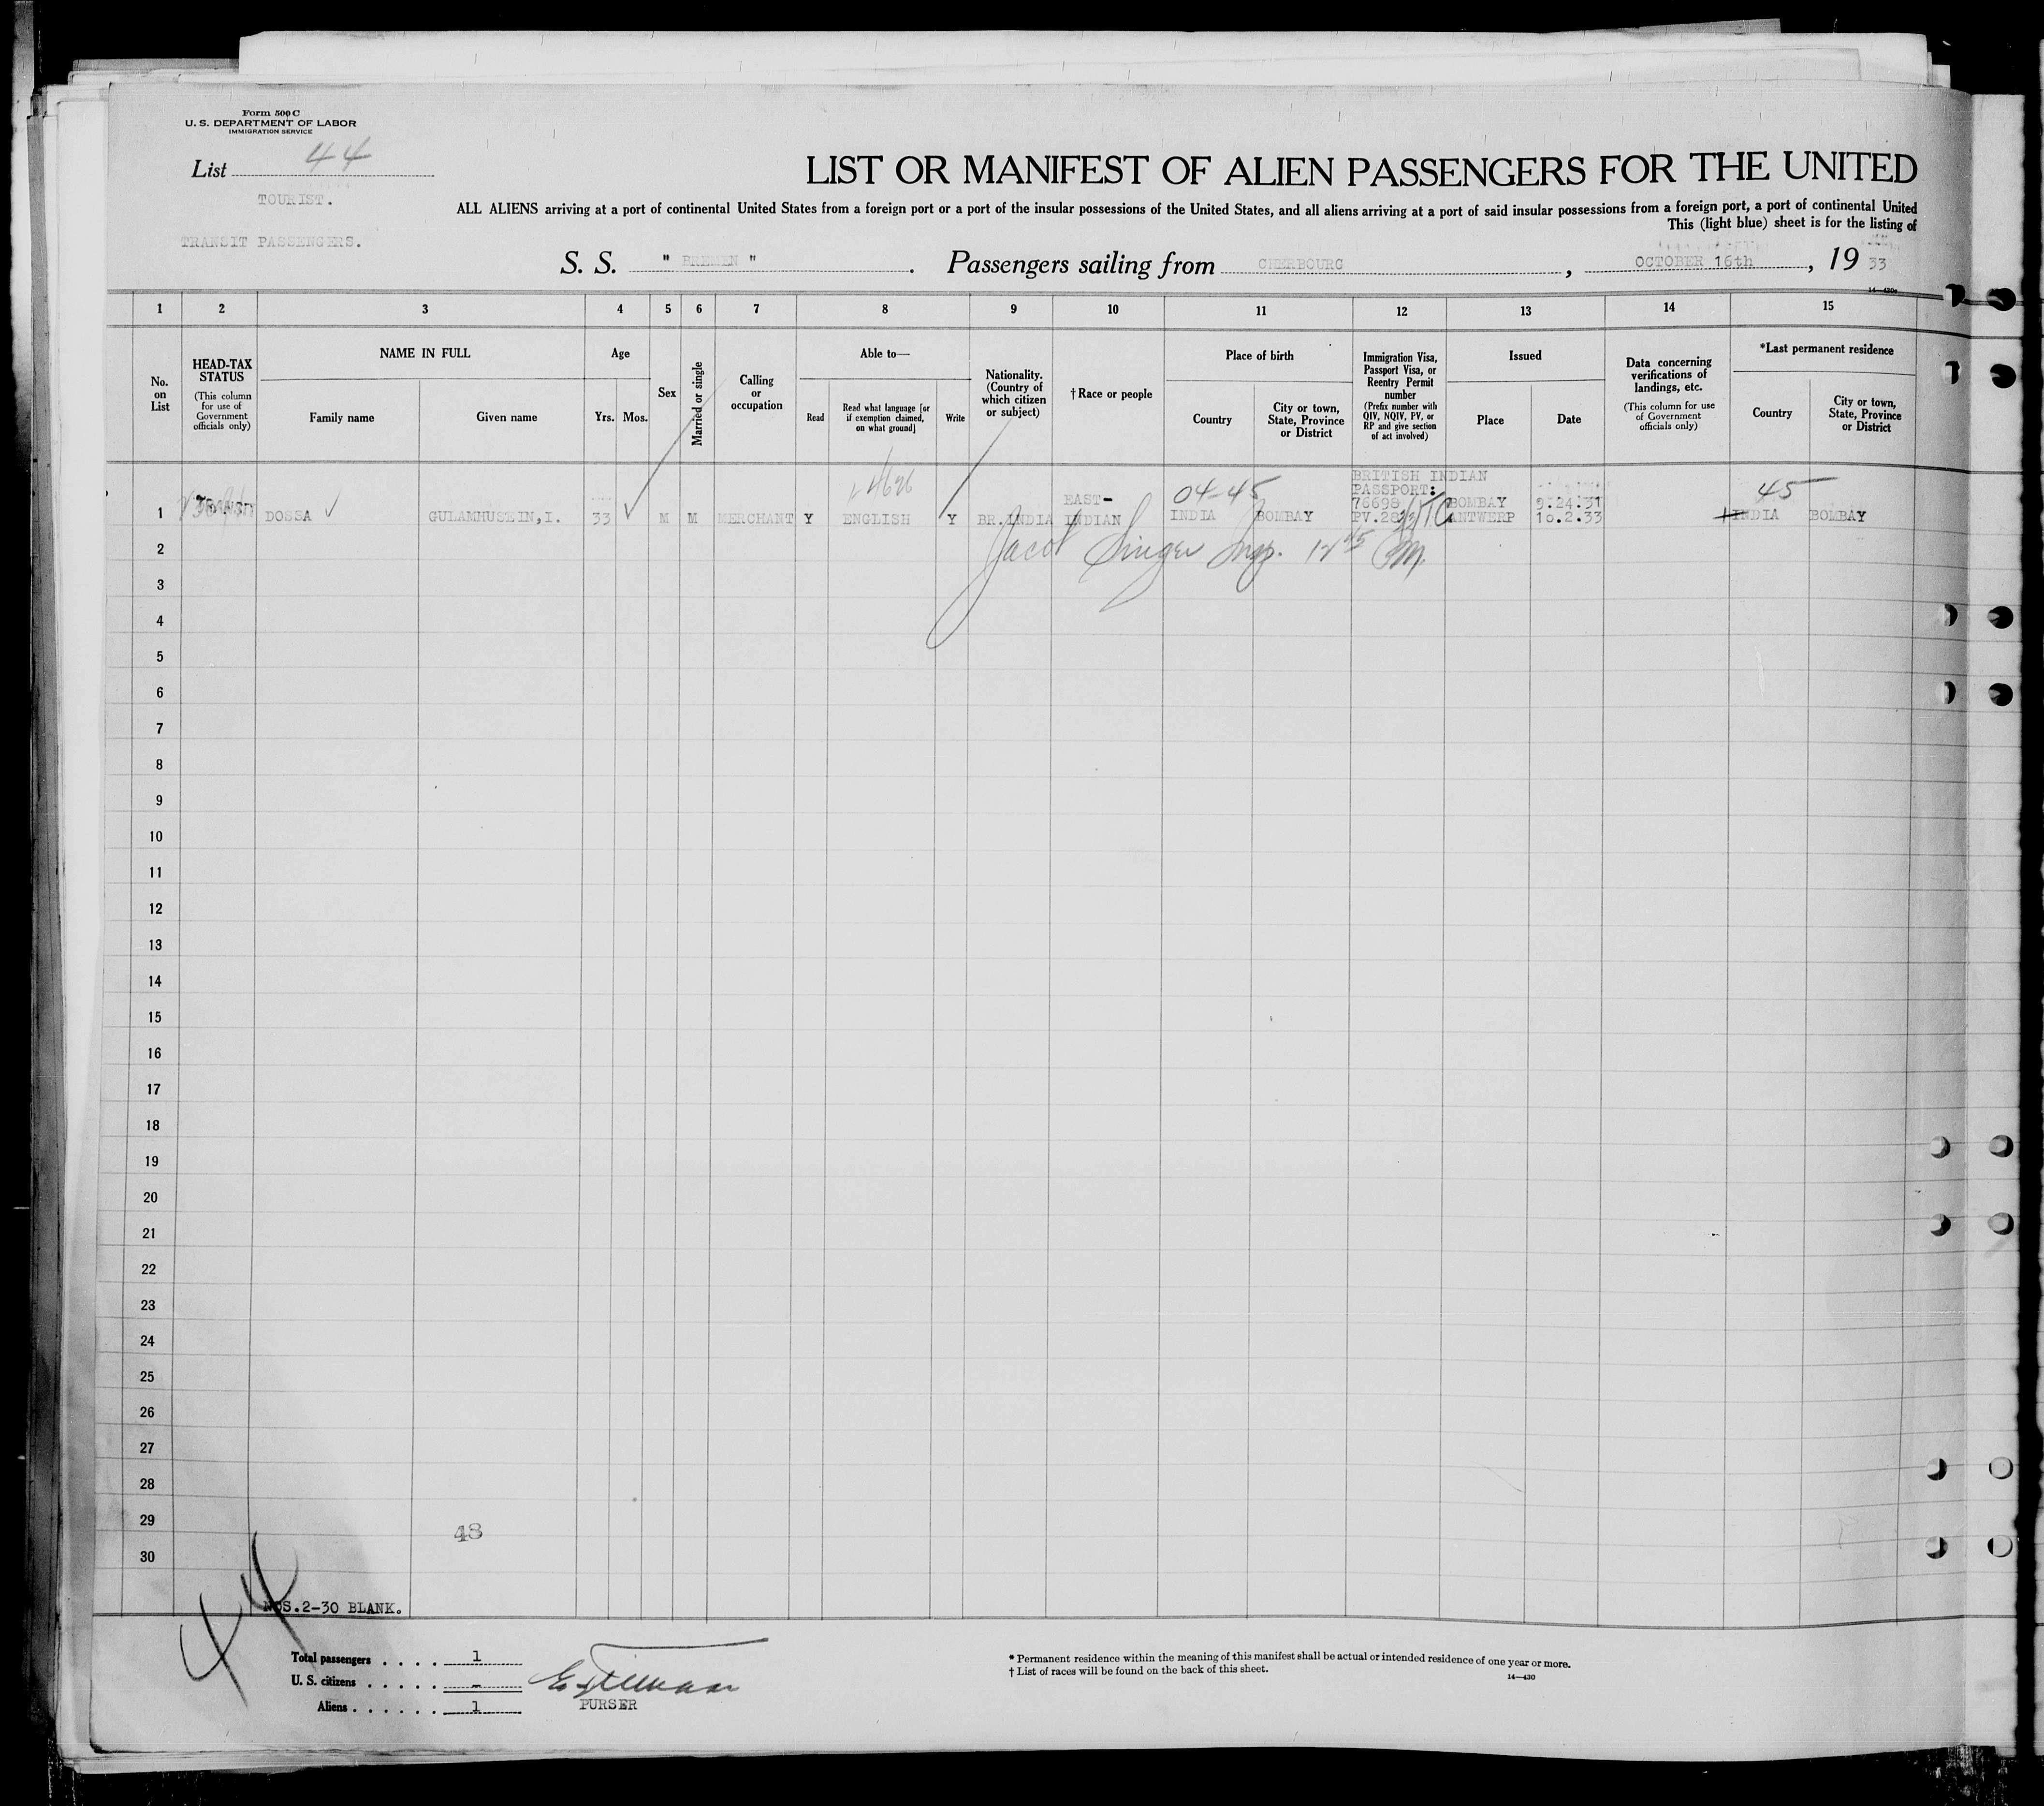 Form 500 C
U. S. DEPARTMENT OF LABOR
IMMIGRATION SERVICE
List 44
TOURIST.
TRANSIT PASSENGERS.
LIST OR MANIFEST OF ALIEN PASSENGERS FOR THE UNITED
ALL ALIENS arriving at a port of continental United States from a foreign port or a port of the insular possessions of the United States, and all aliens arriving at a port of said insular possessions from a foreign port, a port of continental United
This (light blue) sheet is for the listing of
S. S. " BREMEN ". Passengers sailing from CHERBOURG, OCTOBER 16th, 19 33
14—430c
1 2 3 4 5 6 7 8 9 10 11 12 13 14 15
No. on List
HEAD-TAX STATUS
(This column for use of Government officials only)
NAME IN FULL
Family name
Given name
Age
Yrs. Mos.
Sex
Married or single
Calling or occupation
Able to—
Read
Read what language [or if exemption claimed, on what ground]
Write
Nationality. (Country of which citizen or subject)
† Race or people
Place of birth
Country
City or town, State, Province or District
Immigration Visa, Passport Visa, or Reentry Permit number
(Prefix number with QIV, NQIV, PV, or RP and give section of act involved)
Issued
Place
Date
Data concerning verifications of landings, etc.
(This column for use of Government officials only)
*Last permanent residence
Country
City or town, State, Province or District
BRITISH INDIAN
EAST- 04-45 PASSPORT: 45
76698 BOMBAY 9.24.31
1 TRANSIT DOSSA GULAMHUSEIN, I. 33 M M MERCHANT Y ENGLISH Y BR. INDIA INDIAN INDIA BOMBAY ANTWERP 10.2.33 INDIA BOMBAY
2 Jacob Singer Insp.
3
4
5
6
7
8
9
10
11
12
13
14
15
16
17
18
19
20
21
22
23
24
25
26
27
28
29 48
30
NOS.2-30 BLANK.
44
Total passengers . . . . 1
U. S. citizens . . . . . -
Aliens . . . . . . 1
PURSER
* Permanent residence within the meaning of this manifest shall be actual or intended residence of one year or more.
† List of races will be found on the back of this sheet.
14—430